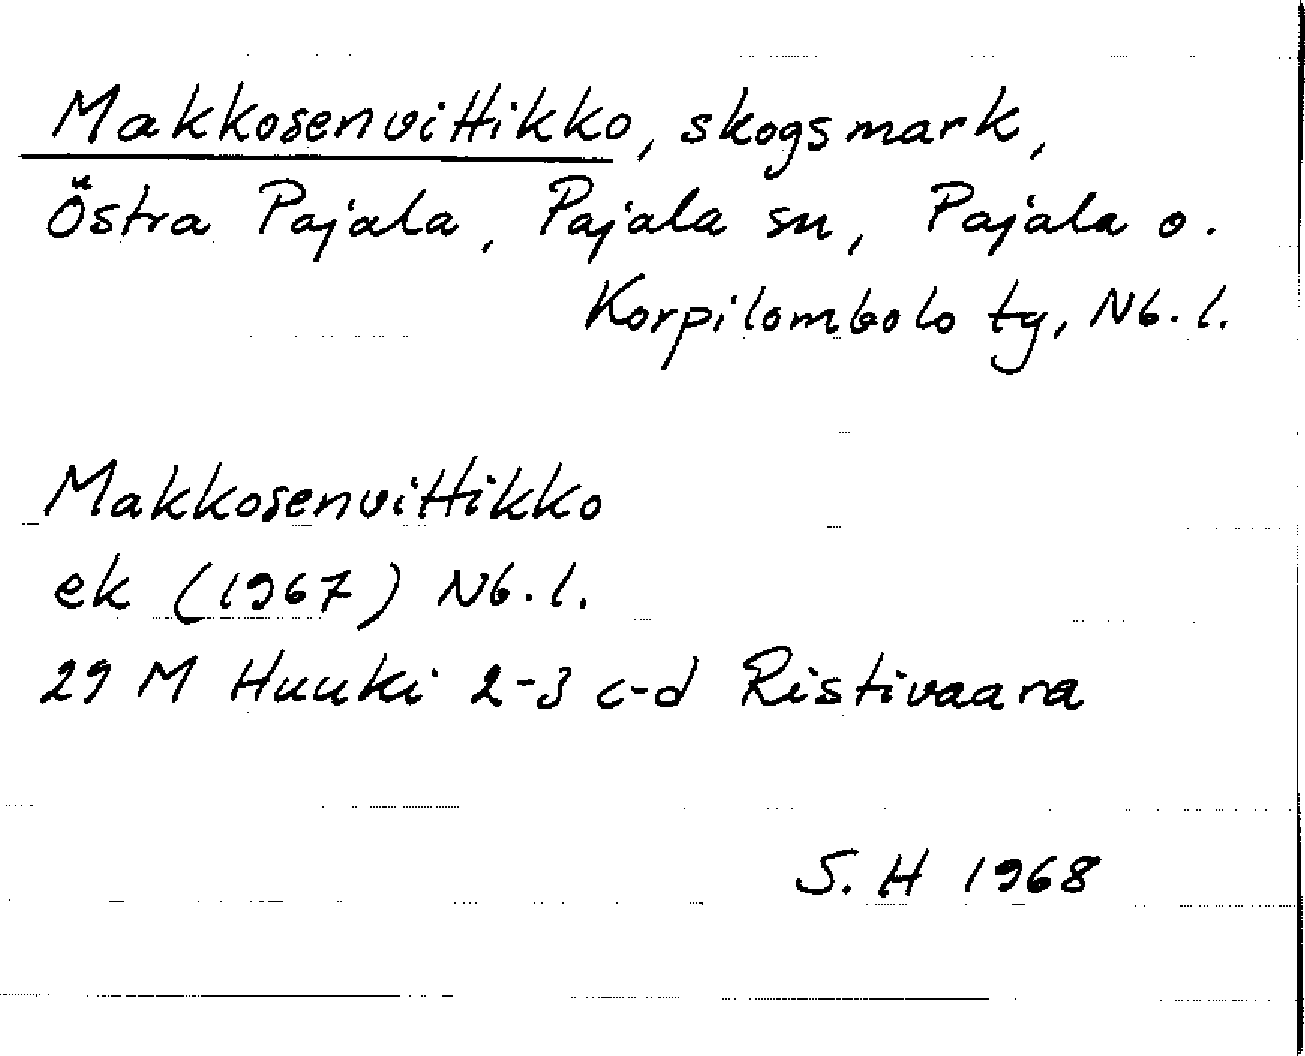 Makkosenvittikko, skogsmark,
Östra Pajala, Pajala sn, Pajala o.
Korpilombolo tg, Nb. l.
Makkosenvittikko
ek (1967) Nb. l.
29 M Huuki 2-3 c-d Ristivaara
S. H 1968